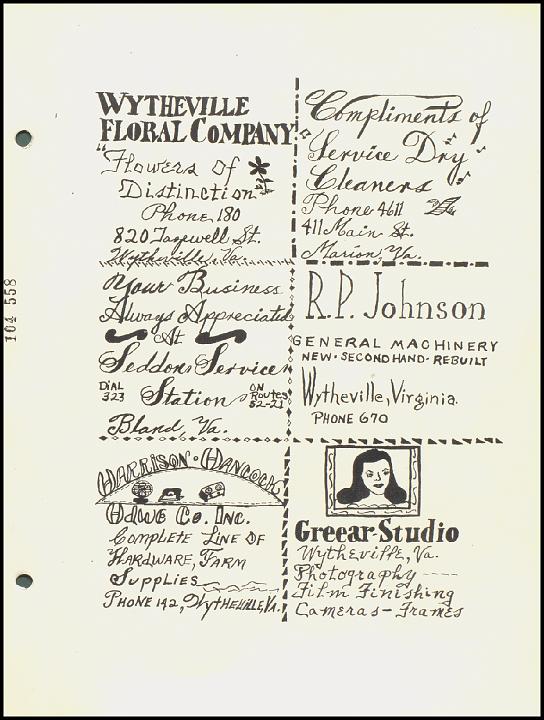 WYTHEVILLE
FLORAL COMPANY
"Flowers of
Distinction"
Phone, 180
820 Tazewell St.
Wytheville, Va.
Compliments of
"Service Dry"
Cleaners
Phone 4611
411 Main St.
Marion, Va.
Your Business
Always Appreciated
At
Seddon Service
Station
DIAL
323
ON
ROUTES
52-21
Bland, Va.
R.P. Johnson
GENERAL MACHINERY
NEW·SECONDHAND·REBUILT
Wytheville, Virginia.
PHONE 670
HARRISON·HANCOCK
HDWE CO. INC.
COMPLETE LINE OF
HARDWARE, FARM
SUPPLIES
PHONE 142, Wytheville, Va.
Greear-Studio
Wytheville, Va.
Photography
Film Finishing
Cameras-Frames
104 558